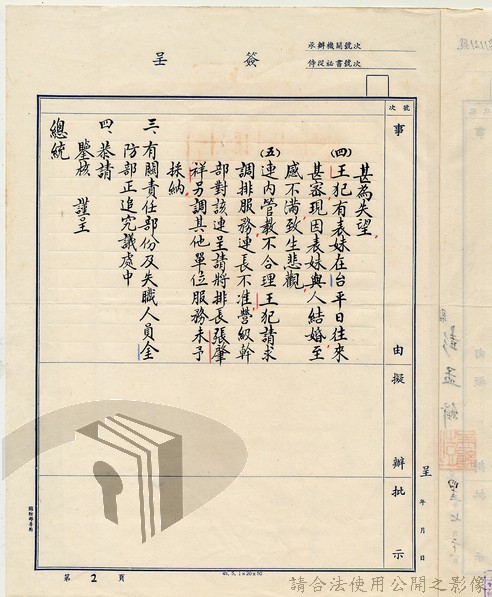 簽呈
承辦機關號次
侍從秘書號次
號次
事由
擬辦
批示
甚為失望
㈣王犯有表妹在台平日往來
甚密現因表妹與人結婚至
感不滿致生悲觀
㈤連內管教不合理王犯請求
調排服務連長不准營級幹
部對該連呈請將排長張肇
祥另調其他單位服務未予
採納
三、有關責任部份及失職人員金
防部正追究議處中
四、恭請
鑒核 謹呈
總統
呈 年 月 日
第2頁
請合法使用公開之影像